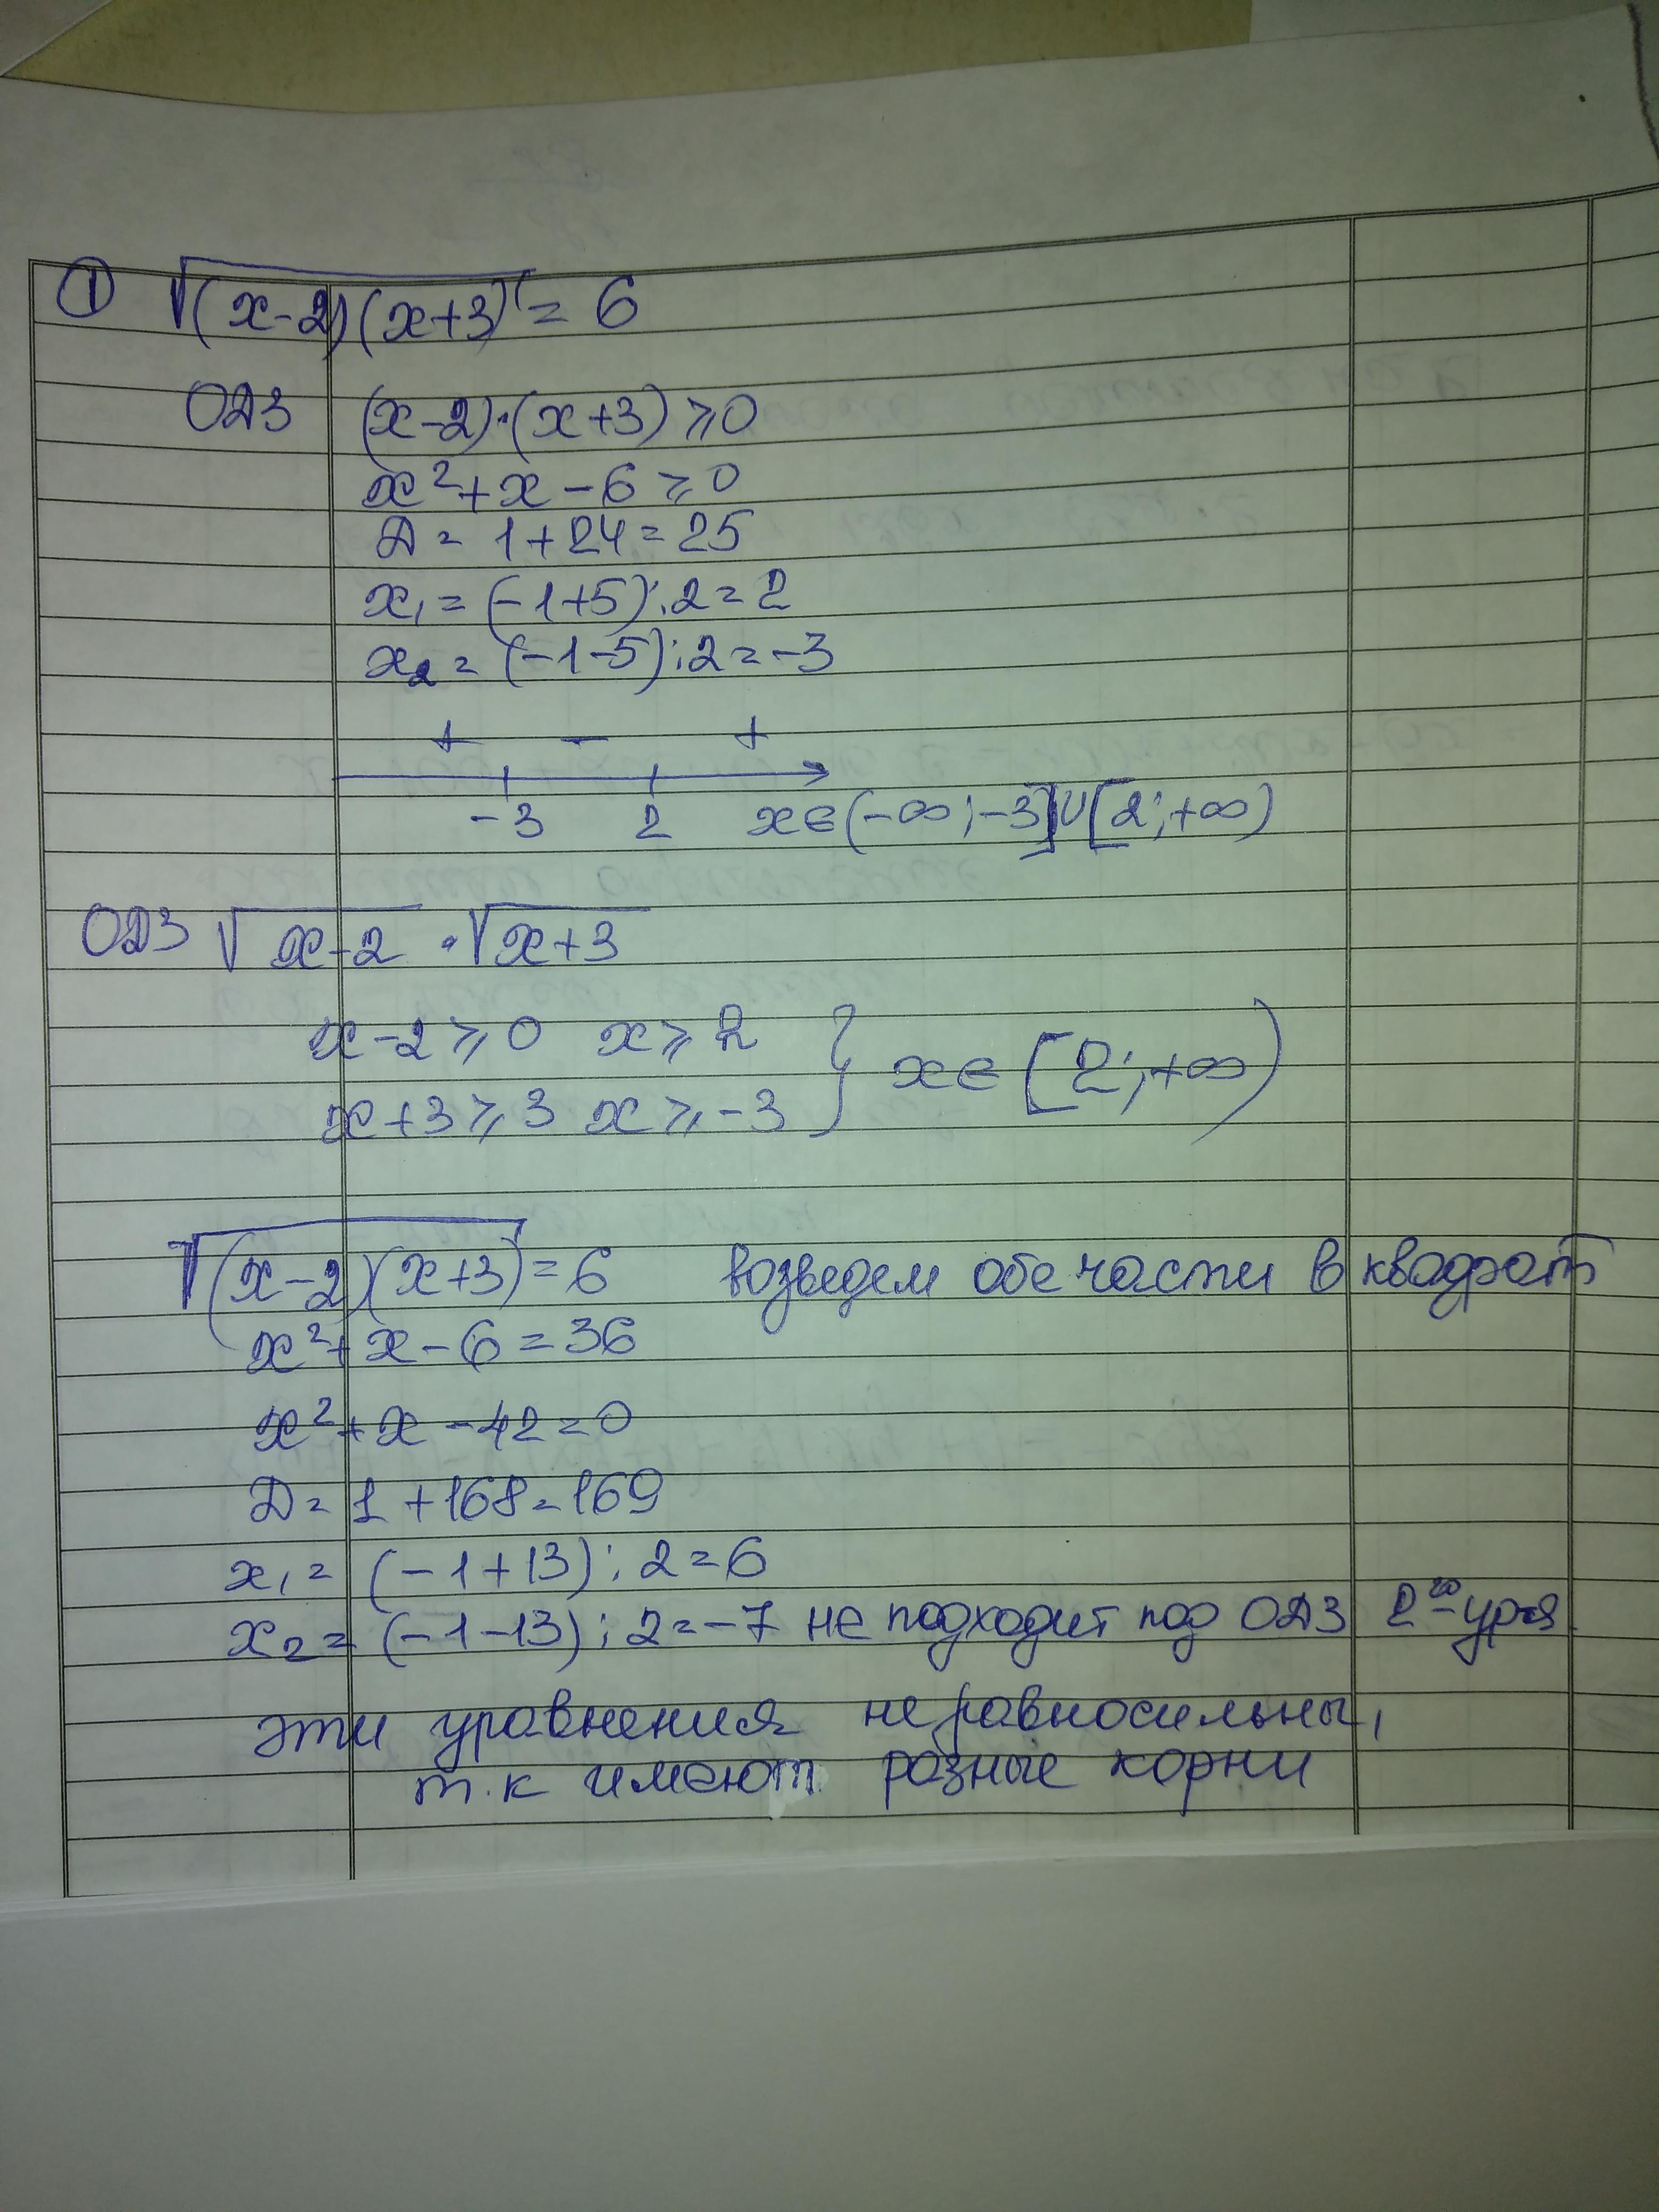 ① √(x-2)(x+3) = 6
ОДЗ (x-2)·(x+3) ⩾ 0
x² + x - 6 ⩾ 0
Д = 1 + 24 = 25
x₁ = (-1+5):2 = 2
x₂ = (-1-5):2 = -3
+ - +
-3 2 x∈(-∞;-3]∪[2;+∞)
ОДЗ √x-2 · √x+3
x-2 ⩾ 0 x ⩾ 2
x+3 ⩾ 3 x ⩾ -3 } x∈[2;+∞)
√(x-2)(x+3) = 6 возведем обе части в квадрат
x² + x - 6 = 36
x² + x - 42 = 0
Д = 1 + 168 = 169
x₁ = (-1+13):2 = 6
x₂ = (-1-13):2 = -7 не подходит под ОДЗ 2го ур-я
эти уравнения не равносильны,
т.к имеют разные корни